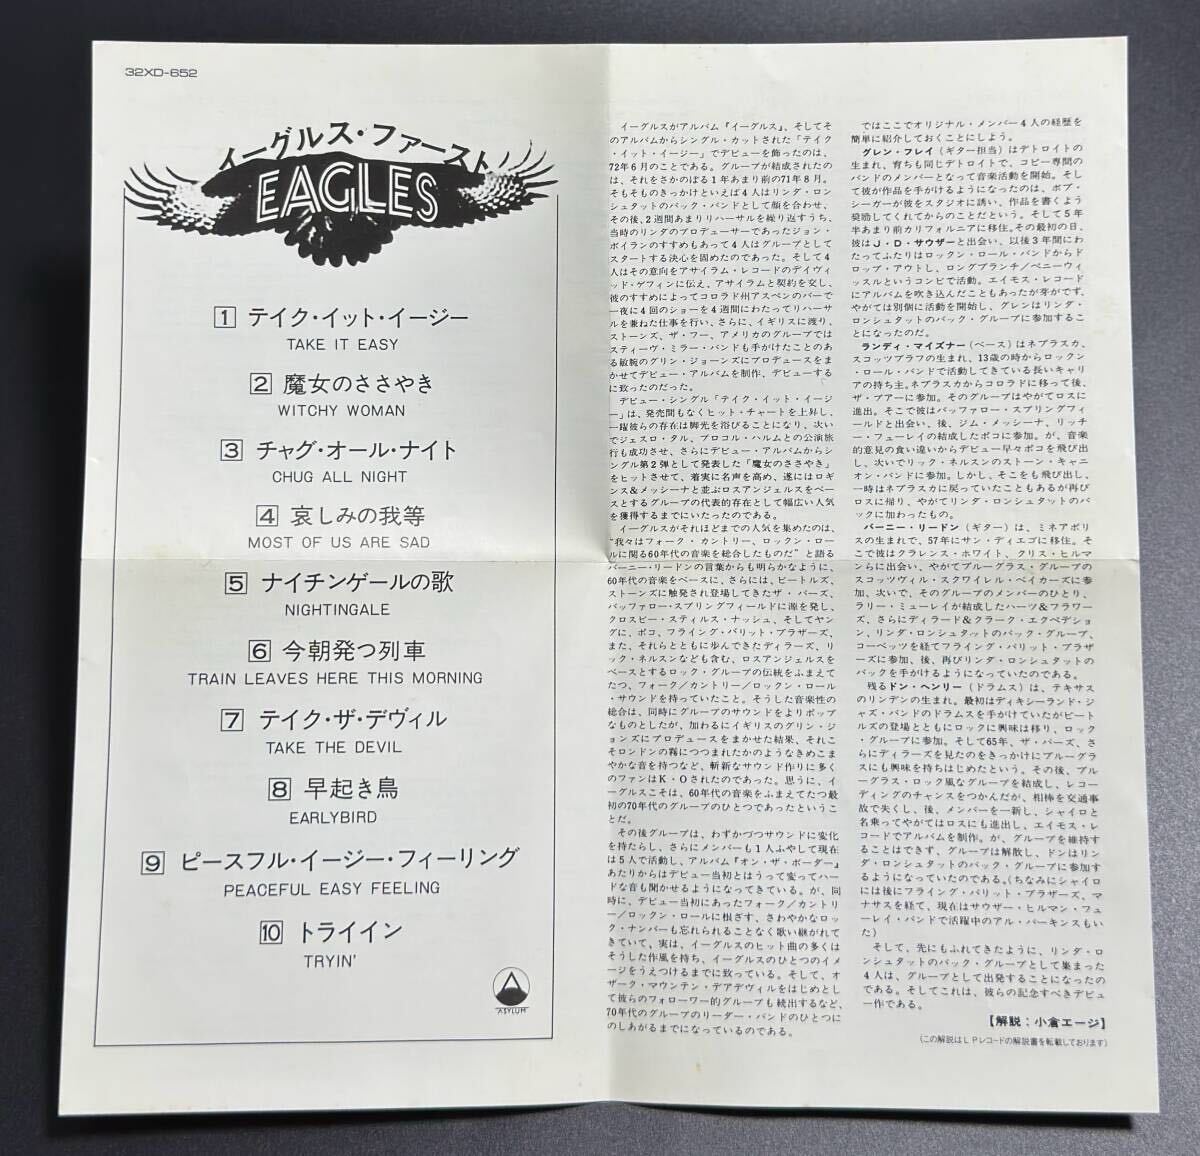 32XD-652
イーグルス・ファースト
EAGLES
1 テイク・イット・イージー
TAKE IT EASY
2 魔女のささやき
WITCHY WOMAN
3 チャグ・オール・ナイト
CHUG ALL NIGHT
4 哀しみの我等
MOST OF US ARE SAD
5 ナイチンゲールの歌
NIGHTINGALE
6 今朝発つ列車
TRAIN LEAVES HERE THIS MORNING
7 テイク・ザ・デヴィル
TAKE THE DEVIL
8 早起き鳥
EARLYBIRD
9 ピースフル・イージー・フィーリング
PEACEFUL EASY FEELING
10 トライイン
TRYIN'
ASYLUM
イーグルスがアルバム『イーグルス』、そしてそ
のアルバムからシングル・カットされた「テイク
・イット・イージー」でデビューを飾ったのは、
72年6月のことである。グループが結成されたの
は、それをさかのぼる1年あまり前の71年8月。
そもそものきっかけといえば4人はリンダ・ロン
シュタットのバック・バンドとして顔を合わせ、
その後、2週間あまりリハーサルを繰り返すうち、
当時のリンダのプロデューサーであったジョン・
ボイランのすすめもあって4人はグループとして
スタートする決心を固めたのであった。そして4
人はその意向をアサイラム・レコードのデイヴィ
ッド・ゲフィンに伝え、アサイラムと契約を交し、
彼のすすめによってコロラド州アスペンのバーで
一夜に4回のショーを4週間にわたってリハーサ
ルを兼ねた仕事を行い、さらに、イギリスに渡り、
ストーンズ、ザ・フー、アメリカのグループでは
スティーヴ・ミラー・バンドも手がけたことのあ
る敏腕のグリン・ジョーンズにプロデュースをま
かせてデビュー・アルバムを制作、デビューする
に致ったのだった。
デビュー・シングル「テイク・イット・イージ
ー」は、発売間もなくヒット・チャートを上昇し、
一躍彼らの存在は脚光を浴びることになり、次い
でジェスロ・タル、プロコル・ハルムとの公演旅
行も成功させ、さらにデビュー・アルバムからシ
ングル第2弾として発表した「魔女のささやき」
をヒットさせて、着実に名声を高め、遂にはロギ
ンス&メッシーナと並ぶロスアンジェルスをベー
スとするグループの代表的存在として幅広い人気
を獲得するまでにいたったのである。
イーグルスがそれほどまでの人気を集めたのは、
"我々はフォーク・カントリー、ロックン・ロー
ルに関る60年代の音楽を総合したものだ"と語る
バーニー・リードンの言葉からも明らかなように、
60年代の音楽をベースに、さらには、ビートルズ、
ストーンズに触発され登場してきたザ・バーズ、
バッファロー・スプリングフィールドに源を発し、
クロスビー・スティルス・ナッシュ、そしてヤン
グに、ポコ、フライング・バリット・ブラザーズ、
また、それらとともに歩んできたディラーズ、リ
ック・ネルスンなども含む、ロスアンジェルスを
ベースとするロック・グループの伝統をふまえて
たつ、フォーク/カントリー/ロックン・ロール
・サウンドを持っていたこと。そうした音楽性の
総合は、同時にグループのサウンドをよりポップ
なものとしたが、加わるにイギリスのグリン・ジ
ョンズにプロデュースをまかせた結果、それこ
そロンドンの霧につつまれたかのようなきめこま
やかな音を持つなど、斬新なサウンド作りに多く
のファンはK・Oされたのであった。思うに、イ
ーグルスこそは、60年代の音楽をふまえてたつ最
初の70年代のグループのひとつであったというこ
とだ。
その後グループは、わずかづつサウンドに変化
を持たらし、さらにメンバーも1人ふやして現在
は5人で活動し、アルバム『オン・ザ・ボーダー』
あたりからはデビュー当初とはうって変ってハー
ドな音も聞かせるようになってきている。が、同
時に、デビュー当初にあったフォーク/カントリ
ー/ロックン・ロールに根ざす、さわやかなロッ
ク・ナンバーも忘れられることなく歌い継がれて
きていて、実は、イーグルスのヒット曲の多くは
そうした作風を持ち、イーグルスのひとつのイメ
ージをうえつけるまでに致っている。そして、オ
ザーク・マウンテン・デアデヴィルをはじめとし
て彼らのフォローワー的グループも続出するなど、
70年代のグループのリーダー・バンドのひとつに
のしあがるまでになっているのである。
ではここでオリジナル・メンバー4人の経歴を
簡単に紹介しておくことにしよう。
グレン・フレイ（ギター担当）はデトロイトの
生まれ、育ちも同じデトロイトで、コピー専間の
バンドのメンバーとなって音楽活動を開始。そし
て彼が作品を手がけるようになったのは、ボブ・
シーガーが彼をスタジオに誘い、作品を書くよう
奨励してくれてからのことだという。そして5年
半あまり前カリフォルニアに移住。その最初の日、
彼はJ・D・サウザーと出会い、以後3年間にわ
たってふたりはロックン・ロール・バンドからド
ロップ・アウトし、ロングブランチ/ペニーウィ
ッスルというコンビで活動。エイモス・レコード
にアルバムを吹き込んだこともあったが芽がでず、
やがては別個に活動を開始し、グレンはリンダ・
ロンシュタットのバック・グループに参加するこ
とになったのだ。
ランディ・マイズナー（ベース）はネブラスカ、
スコッツブラフの生まれ、13歳の時からロックン
・ロール・バンドで活動してきている長いキャリ
アの持ち主。ネブラスカからコロラドに移って後、
ザ・プアーに参加。そのグループはやがてロスに
進出。そこで彼はバッファロー・スプリングフィ
ールドと出会い、後、ジム・メッシーナ、リッチ
ー・フューレイの結成したポコに参加。が、音楽
的意見の食い違いからデビュー早々ポコを飛び出
し、次いでリック・ネルスンのストーン・キャニ
オン・バンドに参加。しかし、そこをも飛び出し、
一時はネブラスカに戻っていたこともあるが再び
ロスに帰り、やがてリンダ・ロンシュタットのバ
ックに加わったもの。
バーニー・リードン（ギター）は、ミネアポリ
スの生まれで、57年にサン・ディエゴに移住。そ
こで彼はクラレンス・ホワイト、クリス・ヒルマ
ンらに出会い、やがてブルーグラス・グループの
スコッツヴィル・スクワイレル・ベイカーズに参
加、次いで、そのグループのメンバーのひとり、
ラリー・ミューレイが結成したハーツ&フラワー
ズ、さらにディラード&クラーク・エクペデシ
ョン、リンダ・ロンシュタットのバック・グループ、
コーベッツを経てフライング・バリット・ブラザ
ーズに参加、後、再びリンダ・ロンシュタットの
バックを手がけるようになっていたのである。
残るドン・ヘンリー（ドラムス）は、テキサス
のリンデンの生まれ。最初はディキシーランド・ジ
ャズ・バンドのドラムスを手がけていたがビート
ルズの登場とともにロックに興味は移り、ロック
・グループに参加。そして65年、ザ・バーズ、さ
らにディラーズを見たのをきっかけにブルーグラ
スにも興味を持ちはじめたという。その後、ブル
ーグラス・ロック風なグループを結成し、レコー
ディングのチャンスをつかんだが、相棒を交通事
故で失くし、後、メンバーを一新し、シャイロと
名乗ってやがてはロスにも進出し、エイモス・レ
コードでアルバムを制作。が、グループを維持す
ることはできず、グループは解散し、ドンはリン
ダ・ロンシュタットのバック・グループに参加す
るようになっていたのである。（ちなみにシャイロ
には後にフライング・バリット・ブラザーズ、マ
ナサスを経て、現在はサウザー・ヒルマン・フュ
ーレイ・バンドで活躍中のアル・パーキンスもい
た）
そして、先にもふれてきたように、リンダ・ロ
ンシュタットのバック・グループとして集まった
4人は、グループとして出発することになったの
である。そしてこれは、彼らの記念すべきデビュ
ー作である。
【解説：小倉エージ】
（この解説はLPレコードの解説書を転載しております）